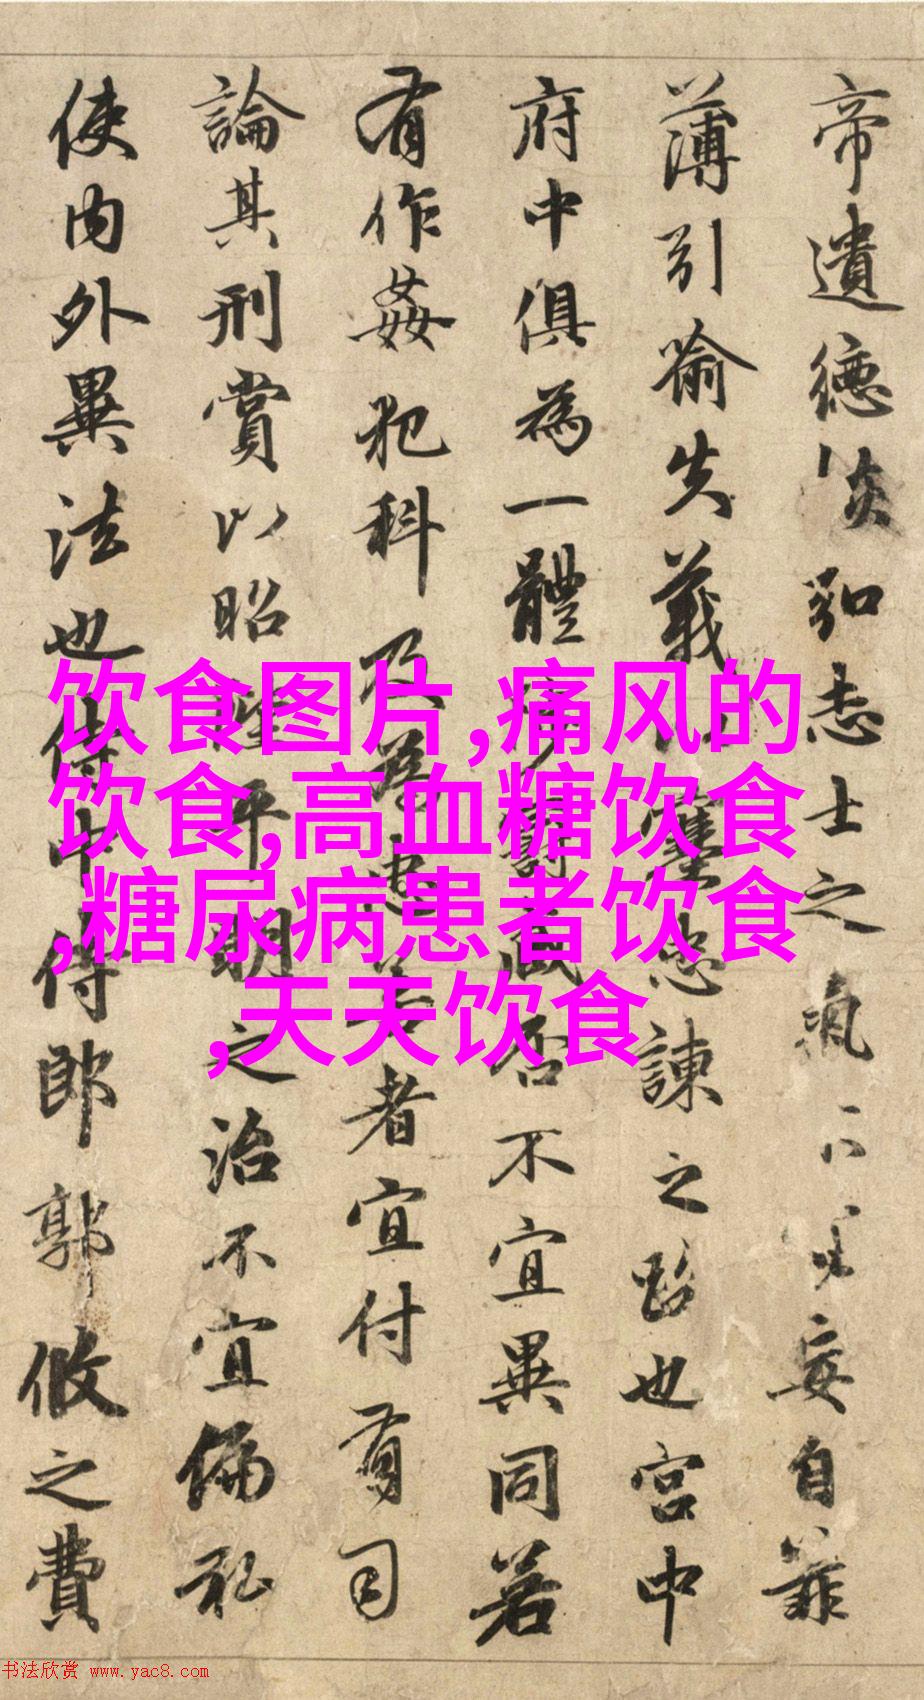 帝遺德恢弘志士之氣不宜妄自菲
薄引喻失義以塞忠諫之路也宮中
府中俱為一體陟罰臧否不宜異同若
有作姦犯科及為忠善者宜付有司
論其刑賞以昭陛平明之治不宜偏私
使內外異法也侍中侍郎郭攸之費
饮食图片,痛风的
饮食,高血糖饮食
,糖尿病患者饮食
,天天饮食
书法欣赏 www.yac8.com